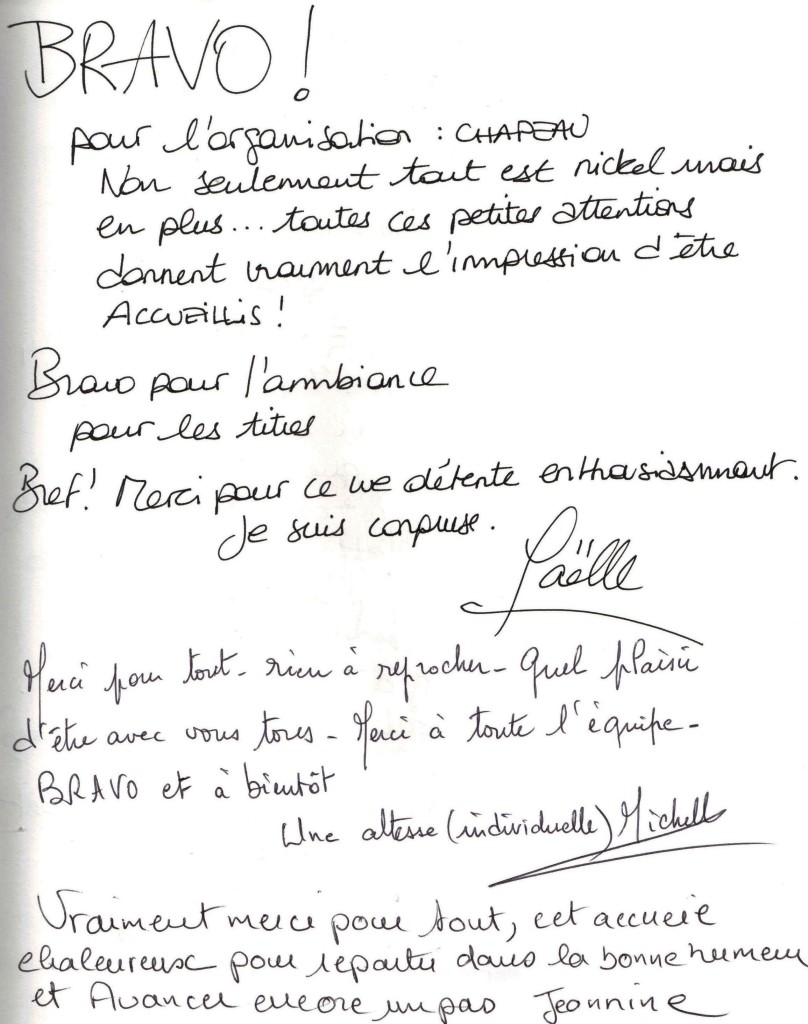 BRAVO !
pour l'organisation : CHAPEAU
Non seulement tout est nickel mais
en plus... toutes ces petites attentions
donnent vraiment l'impression d'être
ACCUEILLIS !
Bravo pour l'ambiance
pour les tities
Bref! Merci pour ce we détente enthousiasmant.
Je suis conquise.
Gaëlle
Merci pour tout - rien à reprocher - Quel plaisir
d'être avec vous tous - Merci à toute l'équipe -
BRAVO et à bientôt
Une altesse (individuelle) Michell
Vraiment merci pour tout, cet accueil
chaleureux pour repartir dans la bonne humeur
et Avancer encore un pas Jeannine